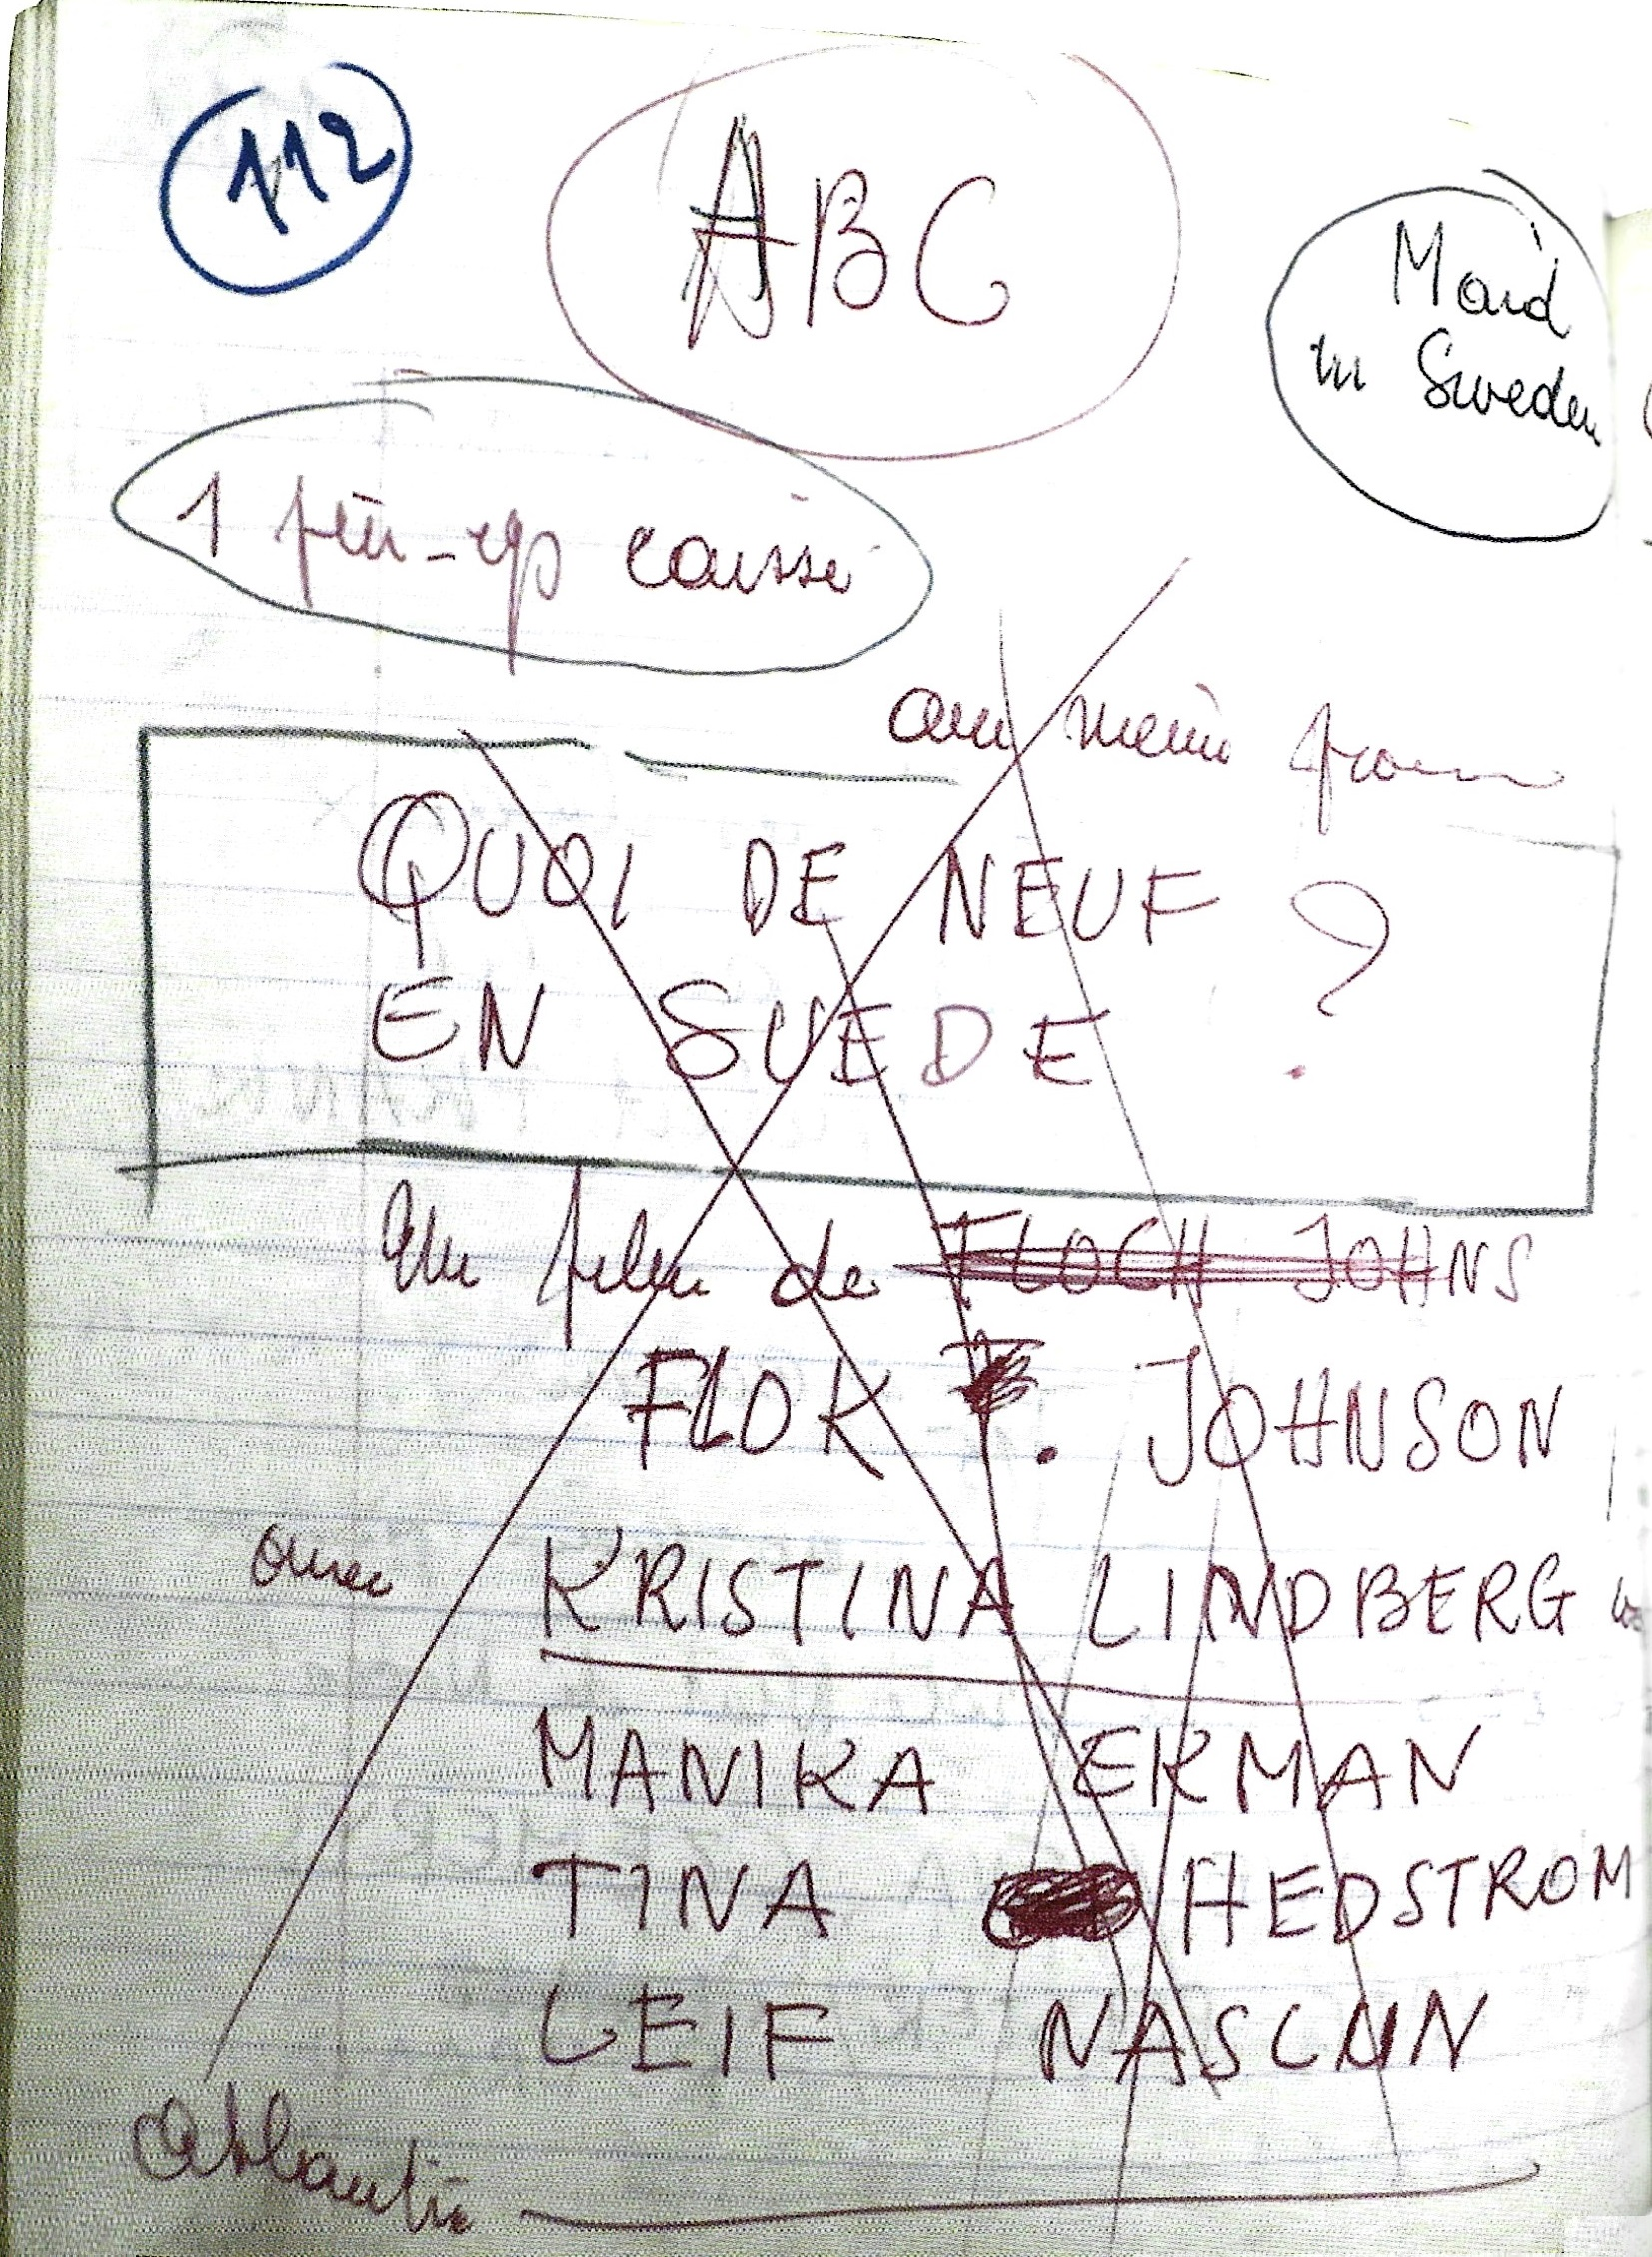 112
ABC
Maid
in Sweden
1 pin-up
QUOI DE NEUF
EN SUEDE ?
Un film de FLOCH JOHNS
FLOR . JOHNSON
avec KRISTINA LINDBERG
MANIKA EKMAN
TINA HEDSTROM
LEIF NASLUN
Atlantic